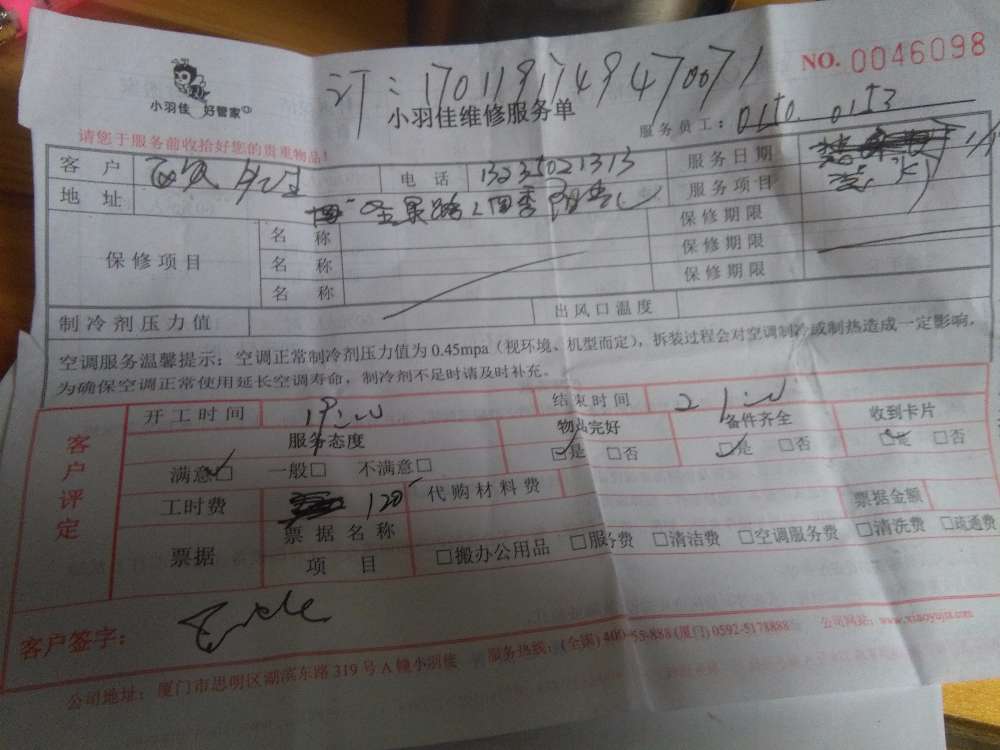 小羽佳 好管家
NO. 0046098
订：1701191749470071
小羽佳维修服务单
服务员工：0150. 0153
请您于服务前收拾好您的贵重物品！
客户 电话 13235021313 服务日期
地址 服务项目
保修项目 名称 保修期限
名称 保修期限
名称 保修期限
制冷剂压力值 出风口温度
空调服务温馨提示：空调正常制冷剂压力值为0.45mpa（视环境、机型而定），拆装过程会对空调制冷或制热造成一定影响，
为确保空调正常使用延长空调寿命，制冷剂不足时请及时补充。
客户评定
开工时间 结束时间
服务态度 物品完好 备件齐全 收到卡片
满意□ 一般□ 不满意□ □是 □否 □是 □否 □是 □否
工时费 120 代购材料费 票据金额
票据 票据名称
项目 □搬办公用品 □服务费 □清洁费 □空调服务费 □清洗费 □疏通费
客户签字：
公司地址：厦门市思明区湖滨东路319号A幢小羽佳 服务热线：(全国) 400-55-888 (厦门) 0592-5178888 公司网站：www.xiaoyujia.com